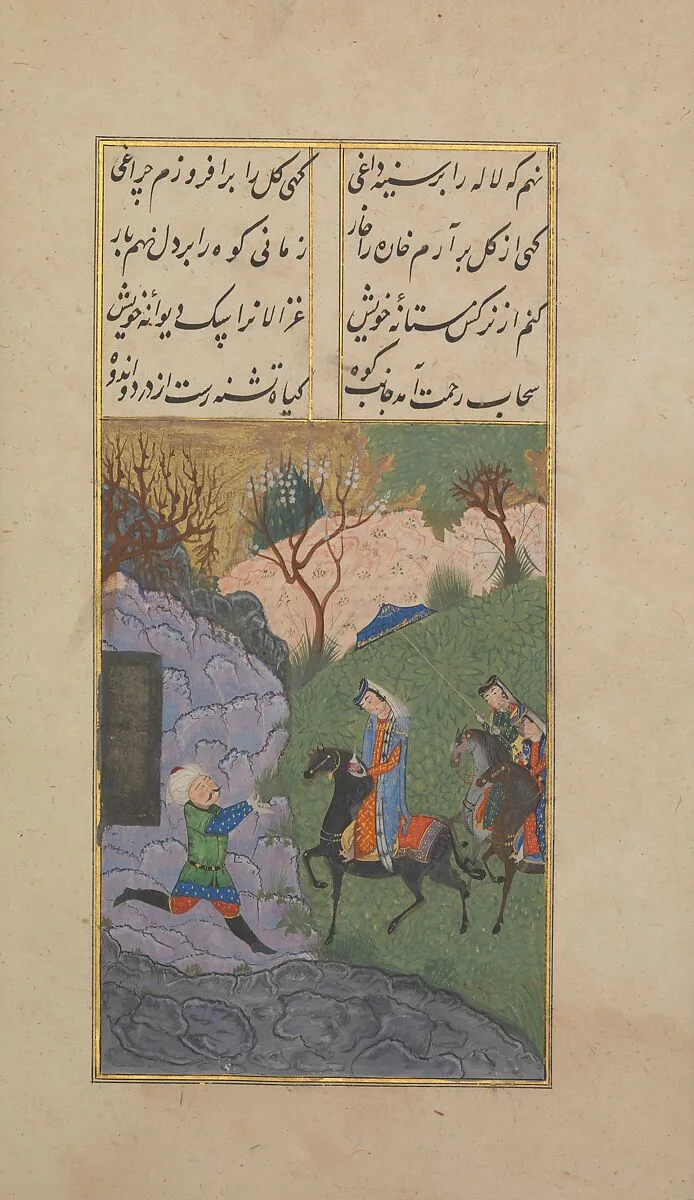 نهم که لاله را بر سینه داغی کهی کل را برافروزم چراغی
کهی از کل برآرم خاره را خار زمانی کوه را بر دل نهم بار
کنم از نرکس مستانهٔ خویش غزالانرا سک دیوانهٔ خویش
سحاب رحمت آمد جانب کوه کیاه تشنه رست از درد و اندوه